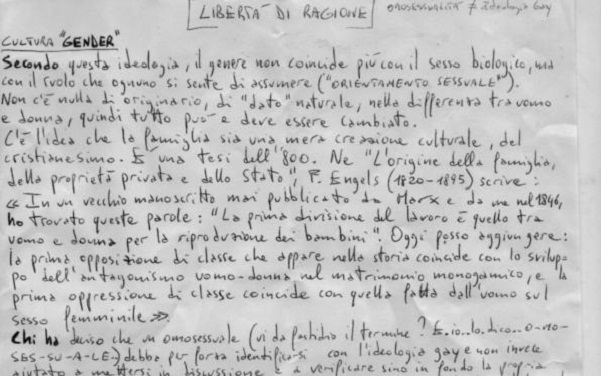 LIBERTA' DI RAGIONE
OMOSESSUALITÀ ≠ Ideologia Gay
CULTURA "GENDER"
Secondo questa ideologia, il genere non coincide più con il sesso biologico, ma
con il ruolo che ognuno si sente di assumere ("ORIENTAMENTO SESSUALE").
Non c'è nulla di originario, di "dato" naturale, nella differenza tra uomo
e donna, quindi tutto può e deve essere cambiato.
C'è l'idea che la famiglia sia una mera creazione culturale, del
cristianesimo. È una tesi dell'800. Ne "L'origine della famiglia,
della proprietà privata e dello Stato", F. Engels (1820-1895) scrive:
« In un vecchio manoscritto mai pubblicato da Marx e da me nel 1846,
ho trovato queste parole: "La prima divisione del lavoro è quello tra
uomo e donna per la riproduzione dei bambini". Oggi posso aggiungere:
la prima opposizione di classe che appare nella storia coincide con lo svilup-
po dell'antagonismo uomo-donna nel matrimonio monogamico, e la
prima oppressione di classe coincide con quella fatta dall'uomo sul
sesso femminile »
Chi ha deciso che un omosessuale (vi dà fastidio il termine? E..io..lo..dico..O-MO-
SES-SU-A-LE) debba per forza identificarsi con l'ideologia gay e non invece
aiutato a mettersi in discussione e a verificare sino in fondo la propria